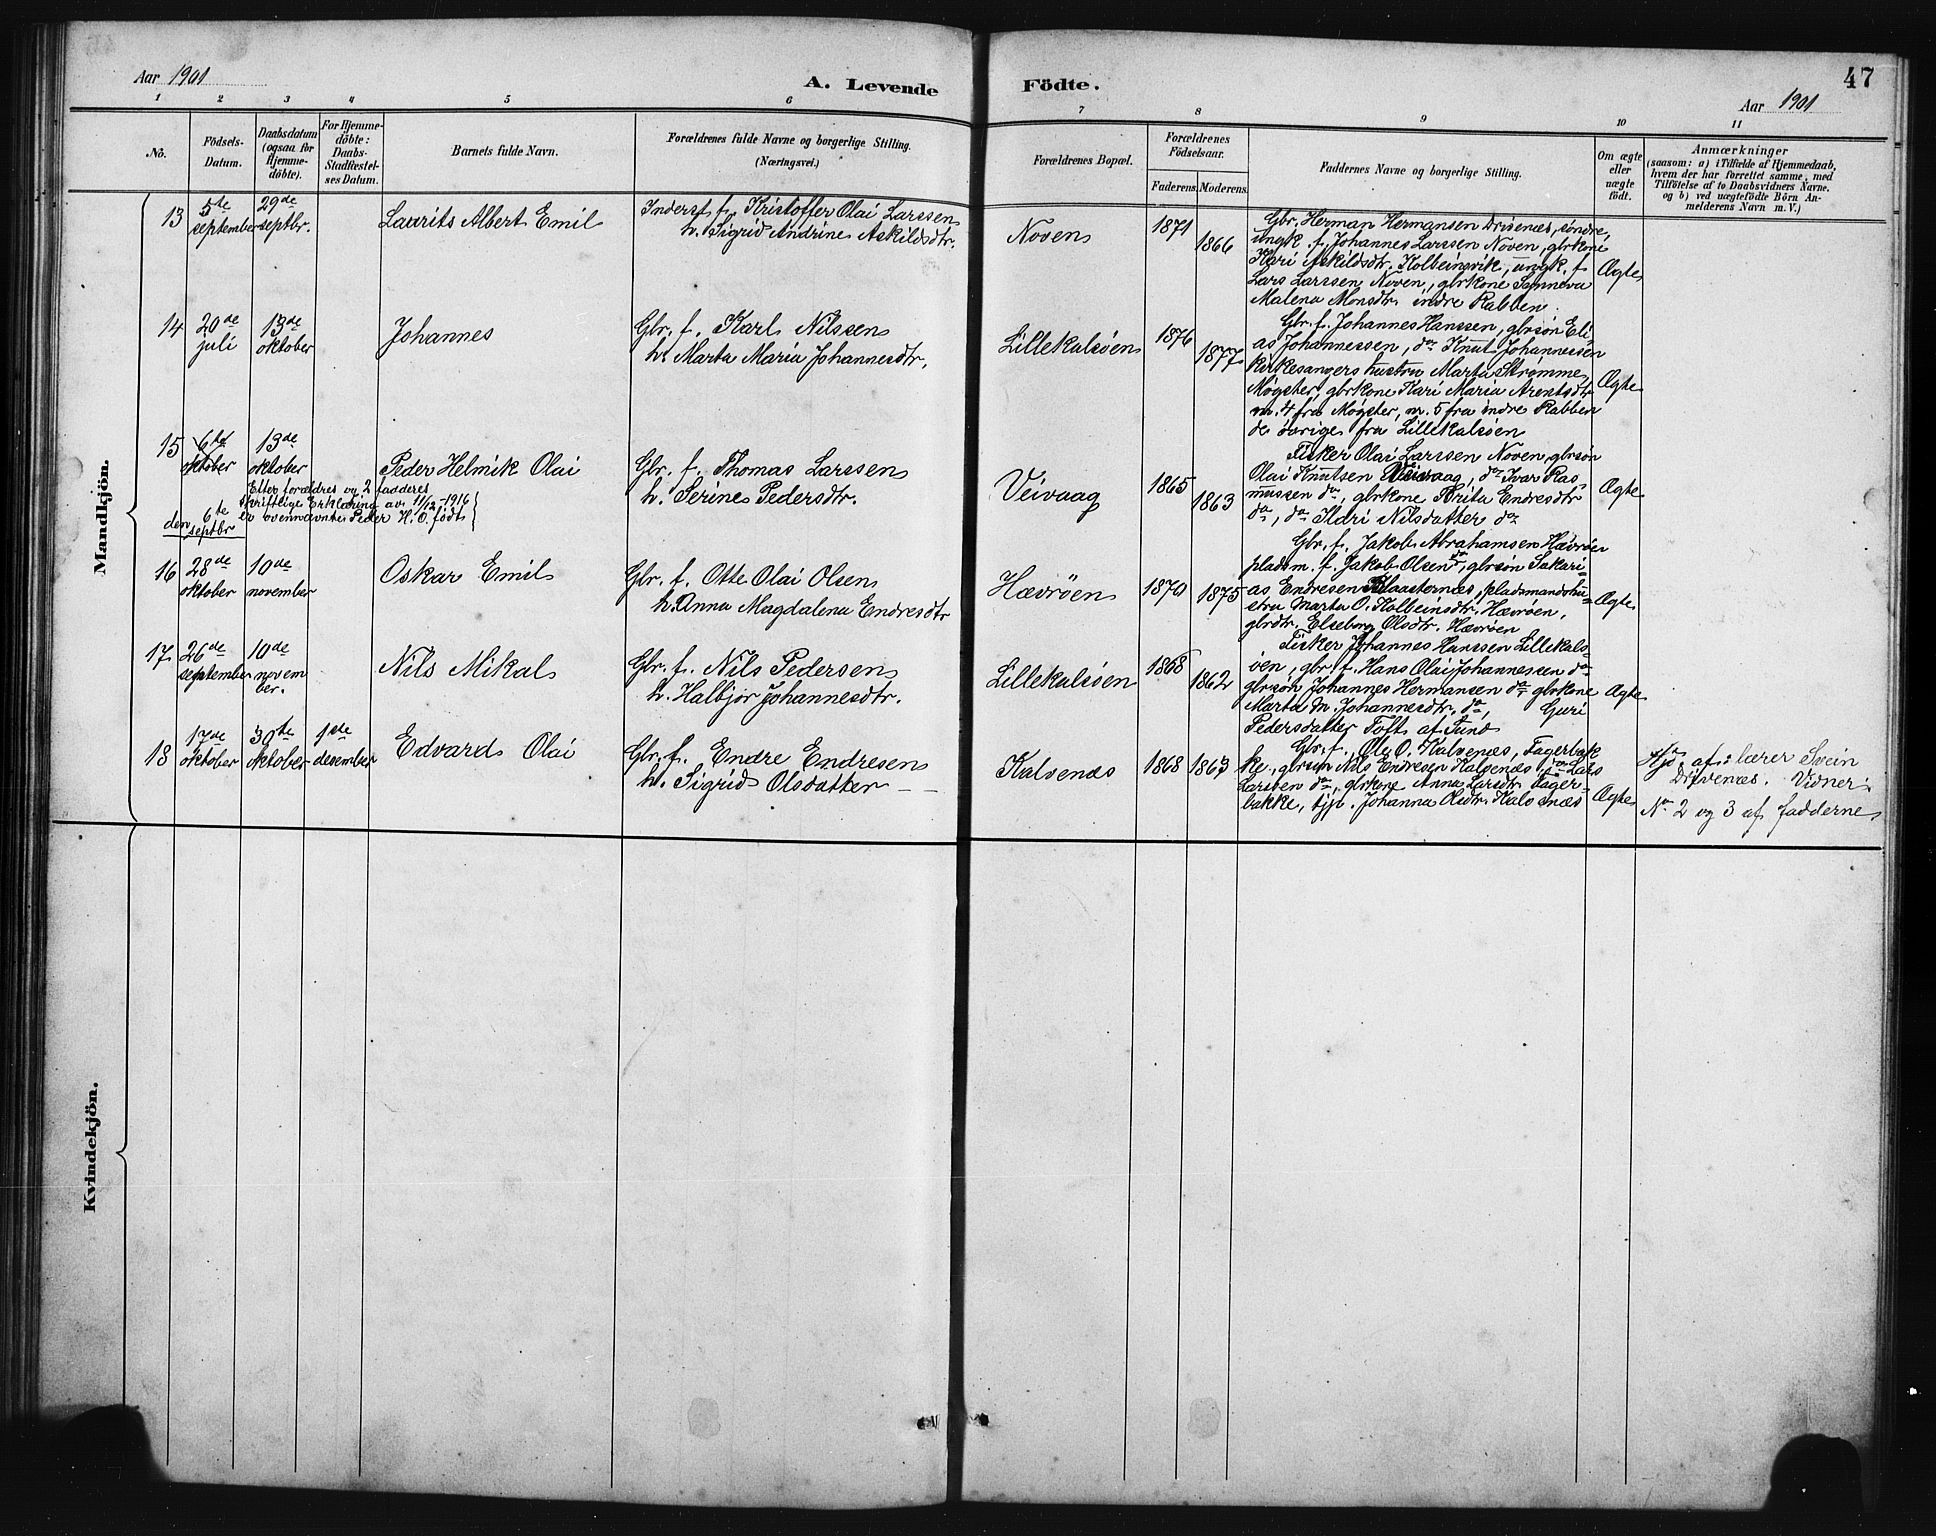 47
Aar 1901
A. Levende Födte.
Aar 1901
1 2 3 4 5 6 7 8 9 10 11
No.
Födsels-
Datum.
Daabsdatum
(ogsaa for
Hjemme-
döbte).
For Hjemme-
döbte:
Daabs-
Stadfæstel-
ses Datum.
Barnets fulde Navn.
Forældrenes fulde Navne og borgerlige Stilling.
(Næringsvei.)
Forældrenes Bopæl.
Forældrenes
Födselsaar.
Faderens. Moderens.
Faddernes Navne og borgerlige Stilling.
Om ægte
eller
uægte
født.
Anmærkninger
(saasom: a) i Tilfælde af Hjemmedaab,
hvem der har forrettet samme, med
Tilföielse af to Daabsvidners Navne.
og b) ved uægtefödte Börn An-
melderens Navn m. V.)
Mandkjön.
13
5te
september
29de
septbr.
Laurits Albert Emil
Inderst f. Kristoffer Olai Larssen
h. Sigrid Andrine Askildsdtr.
Noven
1871
1866
Gbr. Herman Hermansen Drivenæs, søndre,
ungk. f. Johannes Larssen Noven, gbrkone
Kari Askildsdtr. Kolbeinsvik, ungk. f.
Lars Larssen Noven, gbrkone Sanneva
Malena Monsdtr. indre Rabben
Ægte
14
20de
juli
13de
oktober
Johannes
Gbr. f. Karl Nilssen
h. Marta Maria Johannesdtr.
Lillekalsøen
1876
1877
Gbr. f. Johannes Hanssen, gbrsøn Eli-
as Johannessen, do Knut Johannessen
kirkesangers hustru Marta Strømme
Møgster, gbrkone Kari Maria Arentsdtr
n. 4 fra Møgster, n. 5 fra indre Rabben
de øvrige fra Lillekalsøen
Ægte
15
6te
oktober
13de
oktober
Peder Helmik Olai
Gbr. f. Thomas Larssen
h. Serine Pedersdtr.
Efter forældres og 2 fadderes
skriftlige Erklæring av 11/12-1916
er ovennævnte Peder H. O. født
den 6te
septbr
Veivaag
1865
1863
Fisker Olai Larssen Noven, gbrsøn
Olai Knutsen Veivaag, do Ivar Ras-
mussen do, gbrkone Brita Endresdtr
do, do Ildri Nilsdatter do
Ægte
16
28de
oktober
10de
november
Oskar Emil
Gbr. f. Otte Olai Olsen
h. Anna Magdalena Endresdtr
Hævrøen
1870
1875
Gbr. f. Jakob Abrahamsen Hævrøen
pladsm. f. Jakob Olsen do, gbrsøn Sakari-
as Endresen, pladsmandshu-
stru Marta O. Kolbeinsdtr. Hævrøen,
gbrdtr. Elseborg Olsdtr. Hævrøen
Ægte
17
26de
september
10de
novem
ber.
Nils Mikal
Gbr. f. Nils Pedersen
h. Halbjør Johannesdtr.
Lillekalsøen
1868
1862
Fisker Johannes Hanssen Lillekals-
øen, gbr. f. Hans Olai Johannessen do
gbrsøn Johannes Hermansen do, gbrkone
Marta M. Johannesdtr. do, Guri
Pedersdatter Toft af Sund
Ægte
18
17de
oktober
30te
oktober
1ste
desember
Edvard Olai
Gbr. f. Endre Endresen
h. Sigrid Olsdatter
Kalvenæs
1868
1863
Gbr. f. Ole O. Kalvenæs, Fagerbak
ke, gbrsøn Nils Endresen Kalvenæs, do Lars
Larssen do, gbrkone Anna Larsdtr. Fager-
bakke, tjp. Johanna Olsdtr. Kalvenæs
Ægte
Hjd. af: lærer Svein
Drivenæs. Vidner:
No 2 og 3 af fadderne
Kvindekjön.